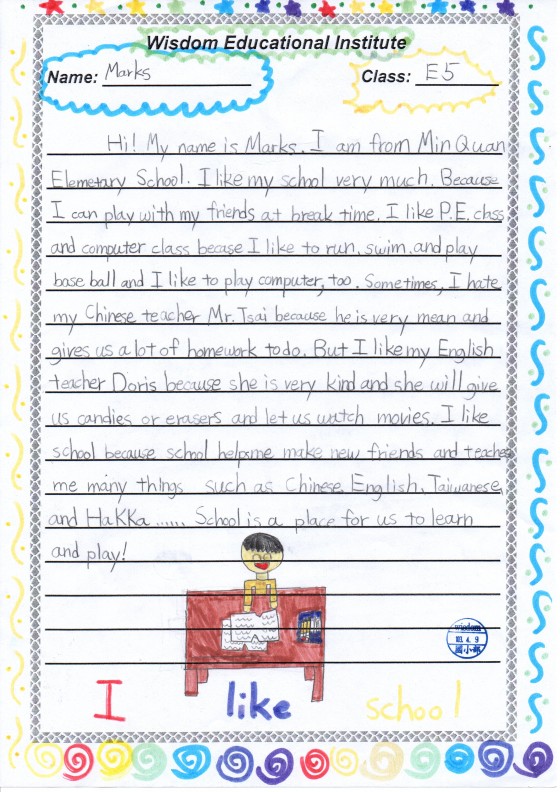 Wisdom Educational Institute
Name: Marks
Class: E5
Hi! My name is Marks. I am from Min Quan
Elemetary School. I like my school very much. Because
I can play with my friends at break time. I like P.E. class
and computer class becase I like to run, swim, and play
base ball and I like to play computer, too. Sometimes, I hate
my Chinese teacher Mr. Tsai because he is very mean and
gives us a lot of homework to do. But I like my English
teacher Doris because she is very kind and she will give
us candies or erasers and let us watch movies. I like
school because school helps me make new friends and teaches
me many things such as Chinese, English, Taiwanese,
and Hakka ...... School is a place for us to learn
and play!
wisdom
103. 4. 9
國小部
I like school